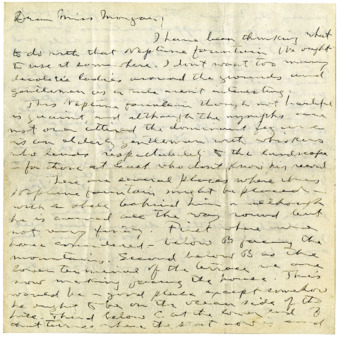 Dear Miss Morgan,
I have been thinking what
to do with that Neptune fountain. We ought
to use it some where. I don't want too many
ladies around the grounds and
gentlemen as a rule arent interesting.
This Neptune fountain though not beautiful
is quaint and although the nymphs are
not over attired the dominant figure
is an elderly gentleman with whiskers
who lends respectability to the landscape
for those at least who don't know his record
There are several places where this
Neptune fountain might be placed
with a shell behind him - although
he is carved all the way round but
not very fussy. First where we
have considered - below B facing the
mountains. Second below B as the
terminal of the terrace we are
now making facing the house. This
would be a good place except somehow
he ought to be on the ocean side of the
hill. Third below C at the lower end of
where the is now and